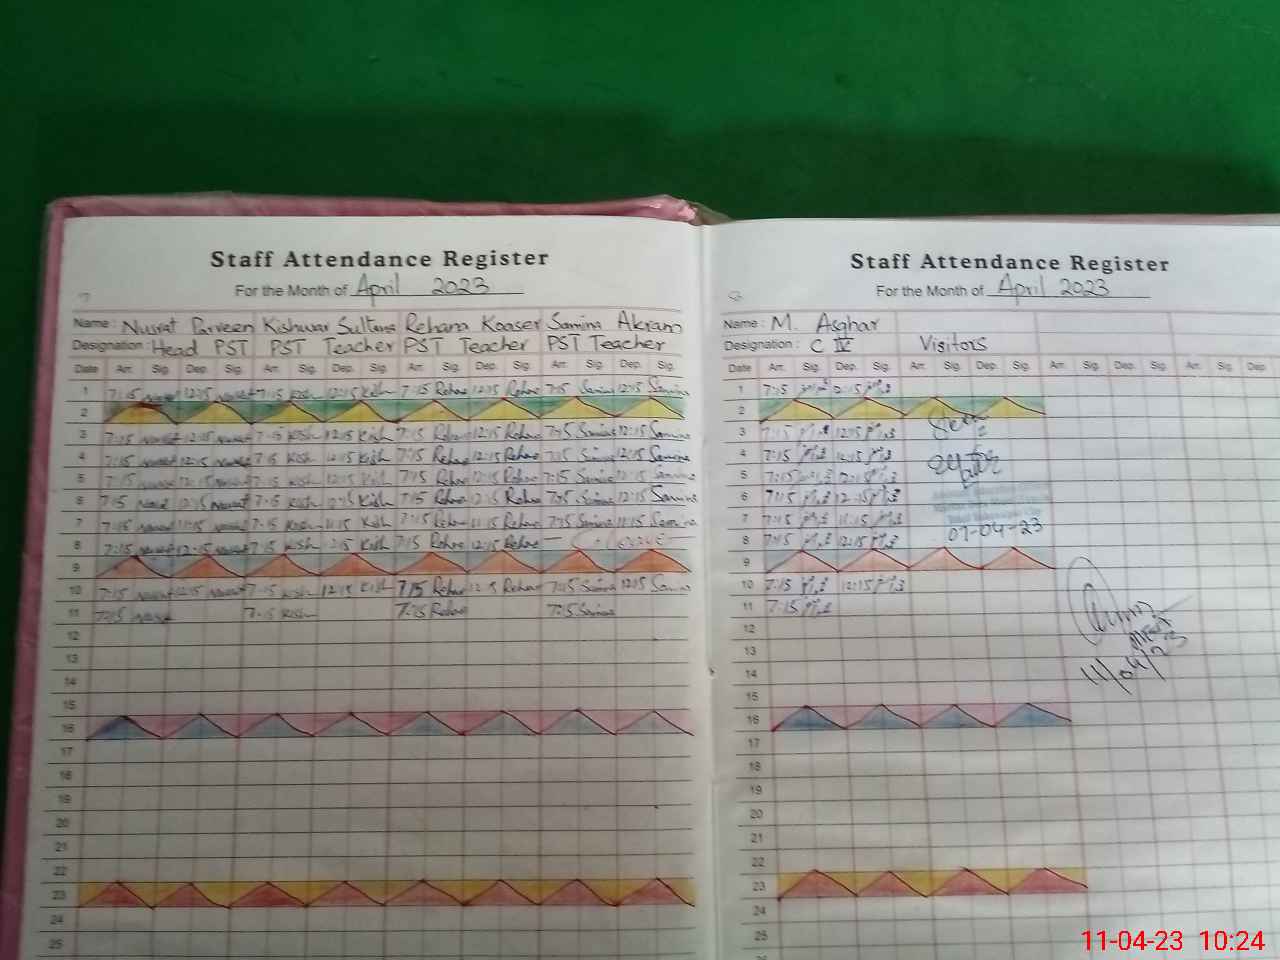 Staff Attendance Register
For the Month of April 2023
Name : Nusrat Parveen Kishwar Sultana Rehana Koaser Samina Akram
Designation : Head PST PST Teacher PST Teacher PST Teacher
Date Arr. Sig. Dep. Sig. Arr. Sig. Dep. Sig. Arr. Sig. Dep. Sig. Arr. Sig. Dep. Sig.
1 7:15 Nusrat 12:15 Nusrat 7:15 Kish 12:15 Kish 7:15 Rehna 12:15 Rehna 7:15 Samina 12:15 Samina
2
3 7:15 Nusrat 12:15 Nusrat 7:15 Kish 12:15 Kish 7:15 Rehna 12:15 Rehna 7:15 Samina 12:15 Samina
4 7:15 Nusrat 12:15 Nusrat 7:15 Kish 12:15 Kish 7:15 Rehna 12:15 Rehna 7:15 Samina 12:15 Samina
5 7:15 Nusrat 12:15 Nusrat 7:15 Kish 12:15 Kish 7:15 Rehna 12:15 Rehna 7:15 Samina 12:15 Samina
6 7:15 Nusrat 12:15 Nusrat 7:15 Kish 12:15 Kish 7:15 Rehna 12:15 Rehna 7:15 Samina 12:15 Samina
7 7:15 Nusrat 11:15 Nusrat 7:15 Kish 11:15 Kish 7:15 Rehna 11:15 Rehna 7:15 Samina 11:15 Samina
8 7:15 Nusrat 12:15 Nusrat 7:15 Kish 12:15 Kish 7:15 Rehna 12:15 Rehna Leave
9
10 7:15 Nusrat 12:15 Nusrat 7:15 Kish 12:15 Kish 7:15 Rehna 12:15 Rehna 7:15 Samina 12:15 Samina
11 7:15 Nusrat 7:15 Kish 7:15 Rehna 7:15 Samina
12
13
14
15
16
17
18
19
20
21
22
23
24
25
Staff Attendance Register
For the Month of April 2023
Name : M. Asghar
Designation : C IV Visitors
Date Arr. Sig. Dep. Sig. Arr. Sig. Dep. Sig. Arr. Sig. Dep. Sig. Arr. Sig. Dep.
1 7:15 12:15
2
3 7:15 12:15
4 7:15 12:15
5 7:15 12:15
6 7:15 12:15
7 7:15 11:15
07-04-23
8 7:15 12:15
9
10 7:15 12:15
11 7:15
12
13
14
11/04/23
15
16
17
18
19
20
21
22
23
24
25
11-04-23 10:24